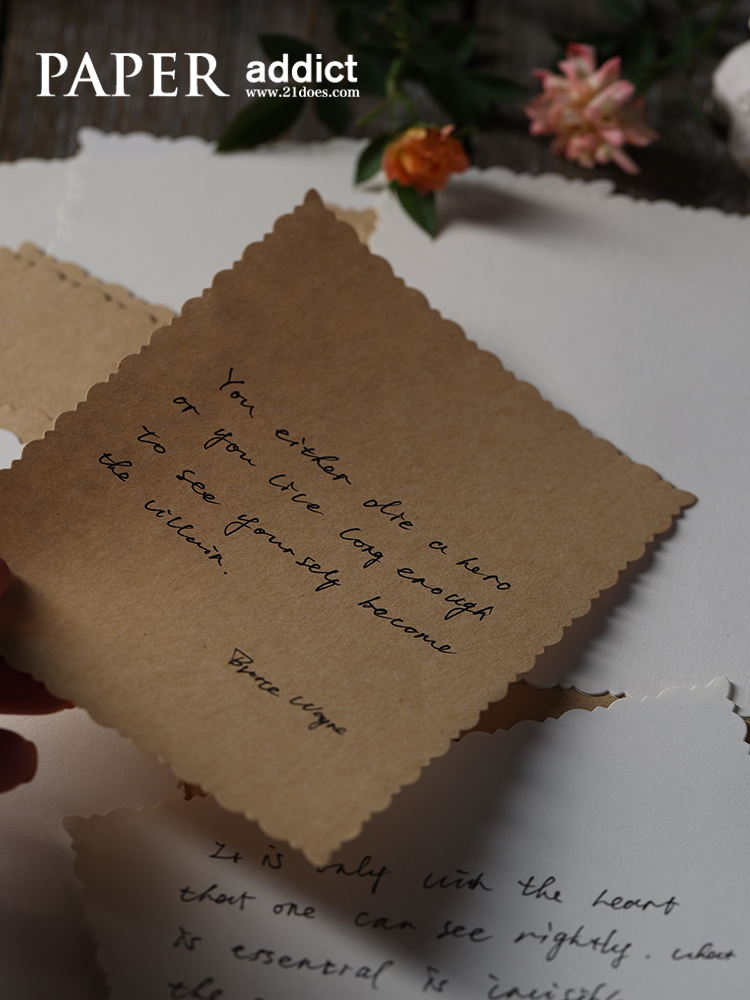 PAPER addict
www.21does.com
You either die a hero
or you live long enough
to see yourself become
the villain.
Bruce Wayne
It is only with the heart
that one can see rightly. what
is essential is
the